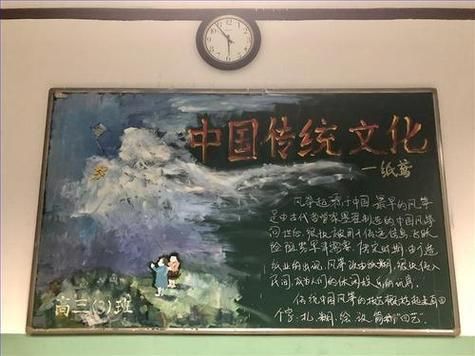 中国传统文化
—纸鸢
风筝起源于中国,最早的风筝
是由古代哲学家墨翟制造的中国风筝
问世后,很快被用于传递信息,飞跃
险阻等军事需要。唐宋时期,由于造
纸业的出现,风筝改由纸糊,很快传入
民间,成为人们的休闲娱乐的玩具。
传统中国风筝的技艺概括起来有四
个字:扎、糊、绘、放 简称“四艺”。
高三(3)班